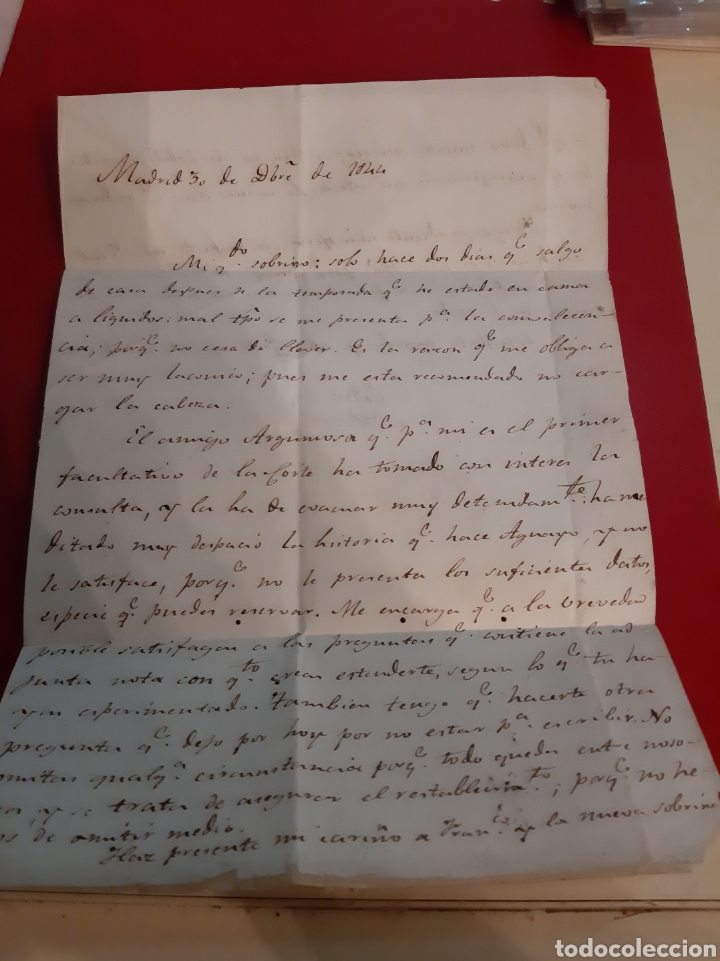 Madrid 30 de Dbre de 1844
Mi qdo sobrino: solo hace dos dias qe salgo
de casa despues de la temporada qe he estado en cama
a liquidos: mal tpo se me presenta pa la convalecen-
cia; porqe no cesa de llover. Es la razon qe me obliga a
ser muy laconico; pues me esta recomendado no car-
gar la cabeza.
El amigo Argumosa qe pa mi es el primer
facultativo de la Corte ha tomado con interes la
consulta, y la ha de evacuar muy detenidamte: ha me
ditado muy despacio la historia qe hace Aguayo, y no
le satisface, porqe no le presenta los suficientes datos,
qe puedes reservar. Me encarga qe a la brevedad
posible satisfagan a las preguntas qe contiene la ad
junta nota con qto crean estenderte, segun lo qe tu ha-
yas esperimentado. Tambien tengo qe hacerte otra
pregunta qe dejo por hoy por no estar pa escribir. No
omitas qualqa circunstancia porqe todo queda entre noso-
tros, y se trata de asegurar el restablecimto; porqe no he-
mos de omitir medio.
Haz presente mi cariño a Franco y la nueva sobrina
todocoleccion